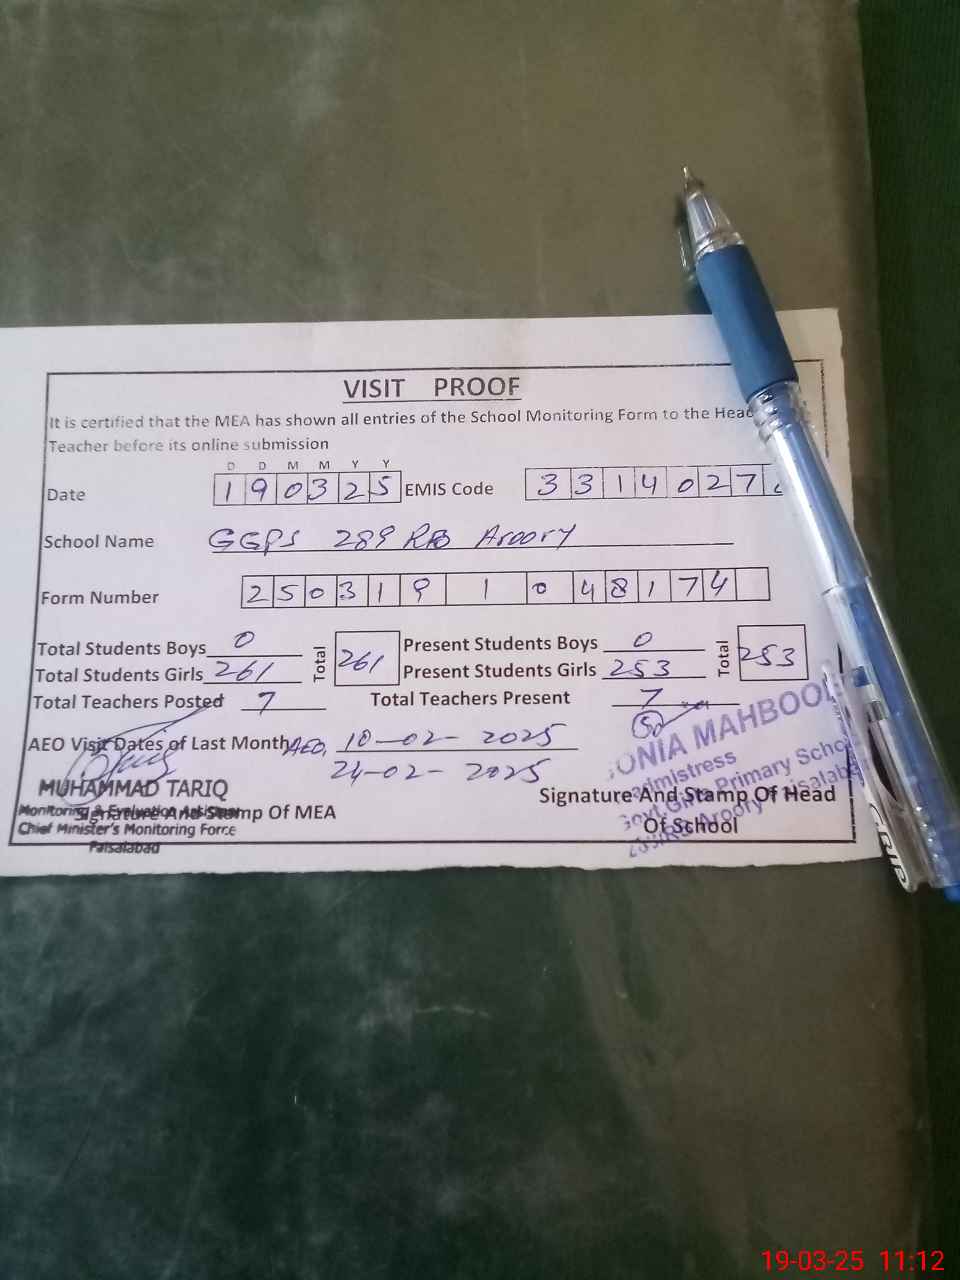 VISIT PROOF
It is certified that the MEA has shown all entries of the School Monitoring Form to the Head
Teacher before its online submission
D D M M Y Y
Date 1 9 0 3 2 5 EMIS Code 3 3 1 4 0 2 7
School Name GGPS 289 RB Aroory
Form Number 2 5 0 3 1 9 1 0 4 8 1 7 4
Total Students Boys 0 Total 261 Present Students Boys 0 Total 253
Total Students Girls 261 Present Students Girls 253
Total Teachers Posted 7 Total Teachers Present 7
AEO Visit Dates of Last Month AEO, 10-02-2025
24-02-2025
MUHAMMAD TARIQ
Monitoring & Evaluation Assistant
Chief Minister's Monitoring Force
Faisalabad
Signature And Stamp Of MEA
ONIA MAHBOO
admistress
Govt. Girls Primary Schoo
Aroory Faisalab
Signature And Stamp Of Head
Of School
GRIP
19-03-25 11:12